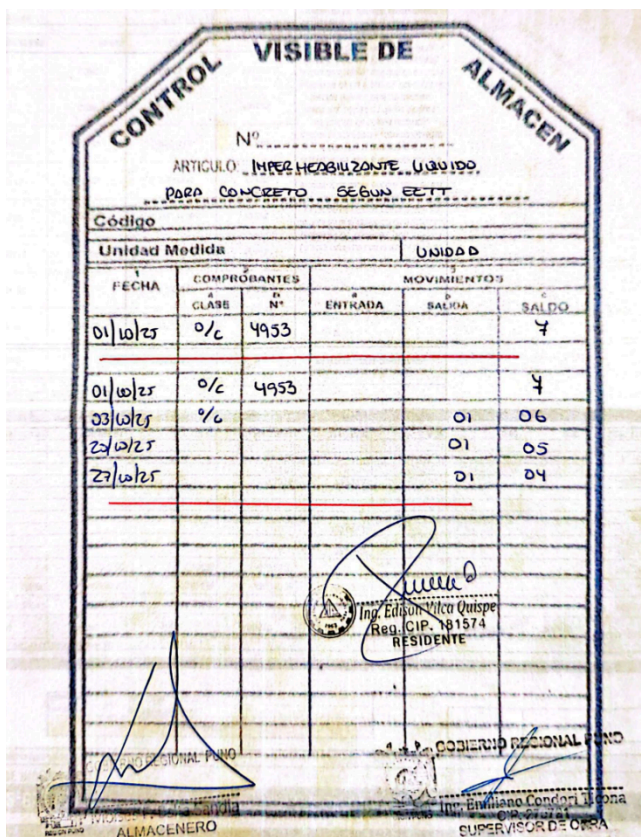 CONTROL VISIBLE DE ALMACEN
Nº
ARTICULO: IMPERHEABILIZANTE LIQUIDO
PARA CONCRETO SEGUN EETT
Código
Unidad Medida UNIDAD
1 3
FECHA COMPROBANTES MOVIMIENTOS
a b a b c
CLASE Nº ENTRADA SALIDA SALDO
01/10/25 O/C 4953 7
01/10/25 O/C 4953 7
03/10/25 O/C 01 06
20/10/25 01 05
27/10/25 01 04
Ing. Edison Vilca Quispe
Reg. CIP. 181574
RESIDENTE
GOBIERNO REGIONAL PUNO
GOBIERNO REGIONAL PUNO
ALMACENERO
Ing. Emiliano Condori Ticona
CIP.
SUPERVISOR DE OBRA